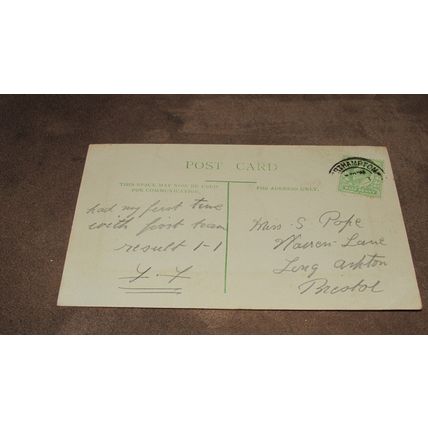 POST CARD
THIS SPACE MAY NOW BE USED
FOR COMMUNICATION.
FOR ADDRESS ONLY.
had my first time
with first team
result 1-1
Miss S Pope
Warren Lane
Long Ashton
Bristol